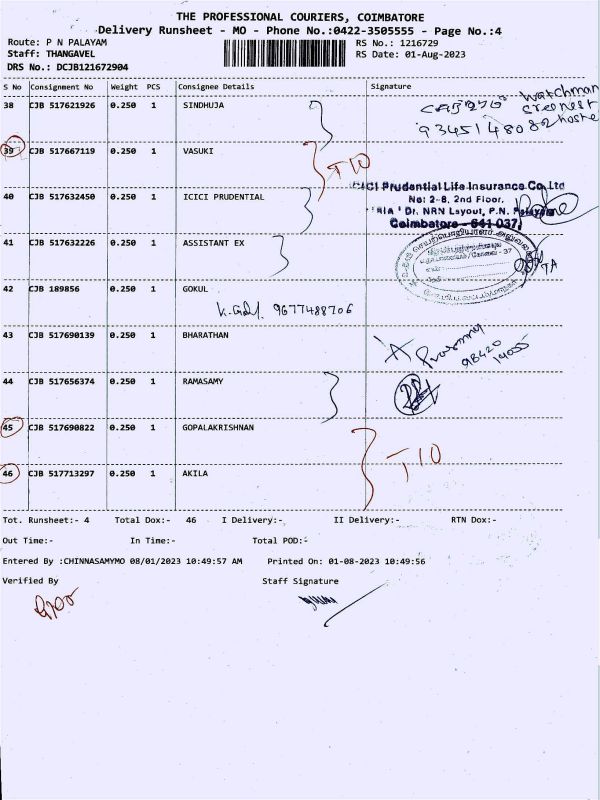 THE PROFESSIONAL COURIERS, COIMBATORE
Delivery Runsheet - MO - Phone No.:0422-3505555 - Page No.:4
Route: P N PALAYAM RS No.: 1216729
Staff: THANGAVEL RS Date: 01-Aug-2023
DRS No.: DCJB121672904
S No Consignment No Weight PCS Consignee Details Signature
38 CJB 517621926 0.250 1 SINDHUJA
Watchman
9345148082
39 CJB 517667119 0.250 1 VASUKI
T10
ICICI Prudential Life Insurance Co Ltd
No: 2-8, 2nd Floor,
Dr. NRN Layout, P.N. Palayam
Coimbatore - 641 037.
40 CJB 517632450 0.250 1 ICICI PRUDENTIAL
41 CJB 517632226 0.250 1 ASSISTANT EX
TA
42 CJB 189856 0.250 1 GOKUL
9677488706
43 CJB 517690139 0.250 1 BHARATHAN
98420
44 CJB 517656374 0.250 1 RAMASAMY
45 CJB 517690822 0.250 1 GOPALAKRISHNAN
T10
46 CJB 517713297 0.250 1 AKILA
Tot. Runsheet:- 4 Total Dox:- 46 I Delivery:- II Delivery:- RTN Dox:-
Out Time:- In Time:- Total POD:-
Entered By :CHINNASAMYMO 08/01/2023 10:49:57 AM Printed On: 01-08-2023 10:49:56
Verified By Staff Signature